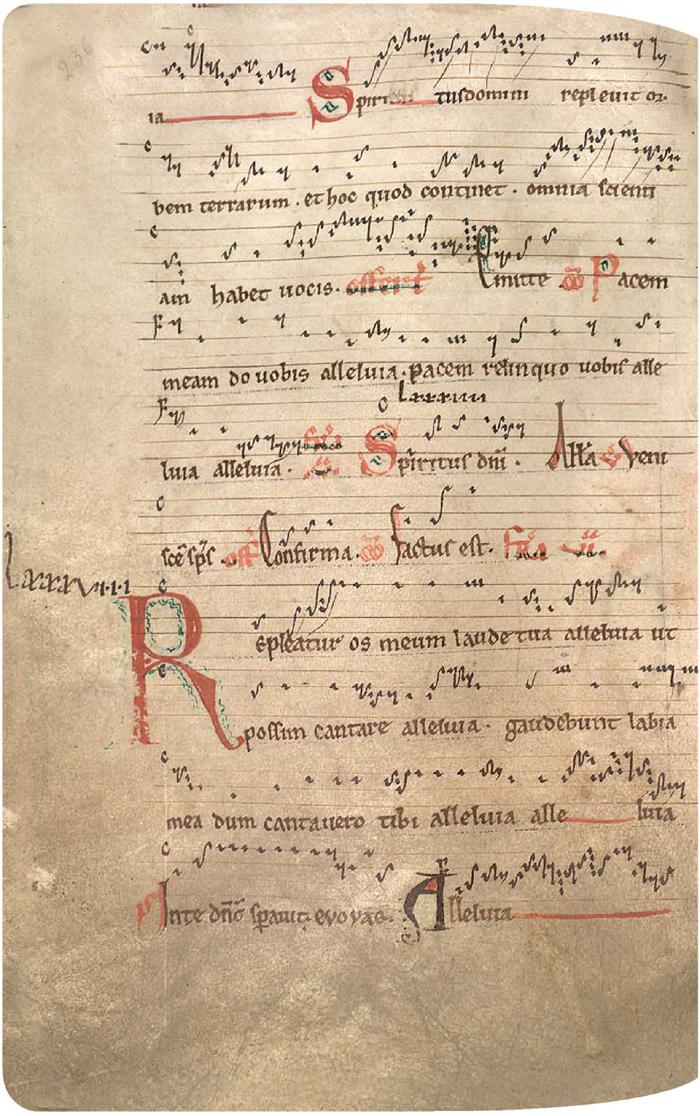 236
ia Spiritus domini repleuit or
bem terrarum . et hoc quod continet . omnia scienti
am habet uocis . offert Emitte co Pacem
meam do uobis alleluia . pacem relinquo uobis alle
Lxxxuiii
luia alleluia . Spiritus dñi . Alla Veni
sce sps . off Confirma . co factus est .
Lxxxviiii
Repleatur os meum laude tua alleluia ut
possim cantare alleluia . gaudebunt labia
mea dum cantauero tibi alleluia alle luia
ps Inte dñe speraui . evovae . Alleluia